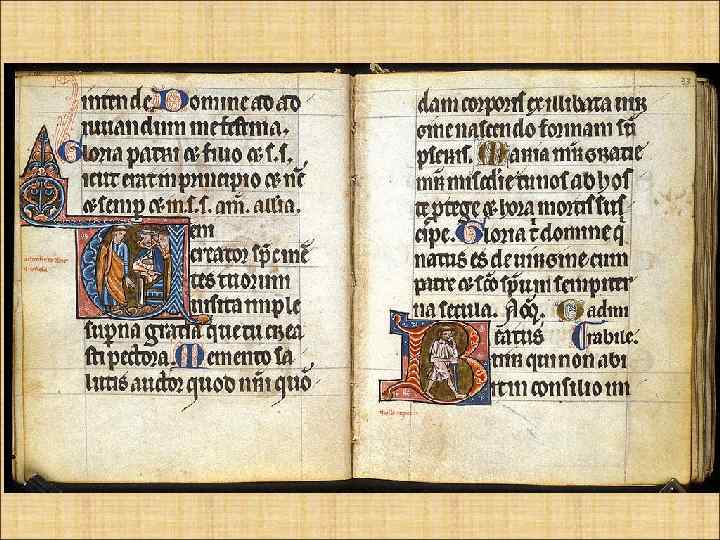 intende. Domine ad ad
iuuandum me festina.
Gloria patri & filio & s. s.
sicut erat in principio & nc̄
& semp & in s. s. am̄. alla.
Veni
creator sp̄c mē
tes tuorum
uisita imple
supna gratia que tu crea
sti pectora. Memento sa
lutis auctor quod nr̄i quō
33
dam corporis ex illibata uir
gine nascendo formam sū
pseris. Maria mr̄ gratie
mr̄ misc̄die tu nos ab hos
te ptege & hora mortis sus
cipe. Gloria t̄ domine q̄
natus es de uirgine cum
patre & sc̄o sp̄u in sempiter
na secula.
Beatus
uir qui non abi
it in consilio im